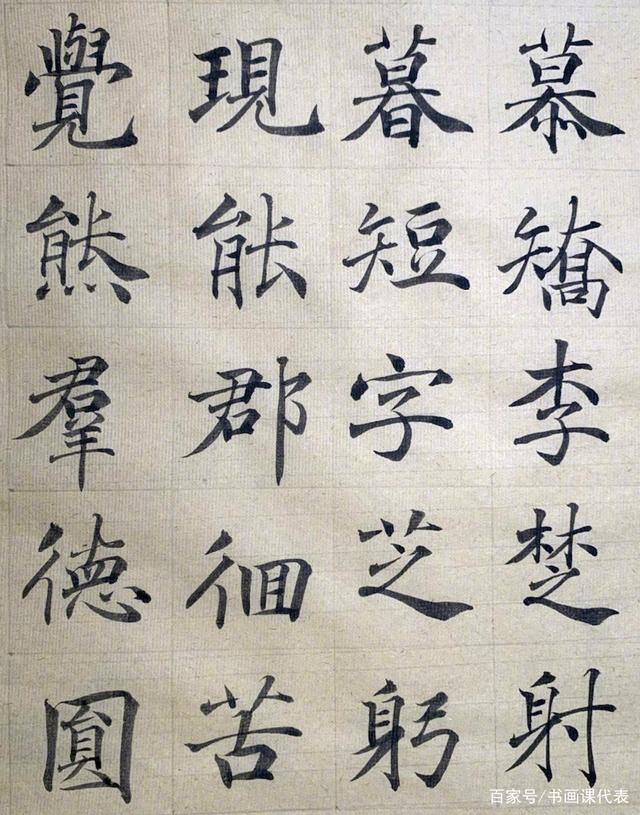 慕矯李楚射
暮短字芝躬
現能郡徊苦
覺熊羣德圓
百家号/书画课代表